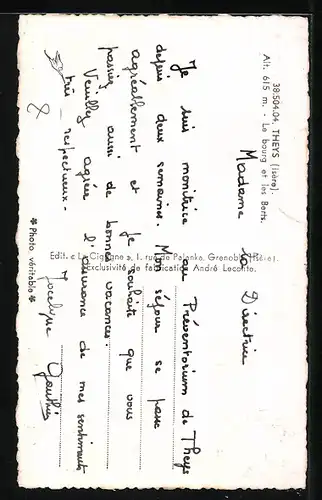 38.504.04. THEYS (Isère).
Alt. 615 m. - Le bourg et les Berts.
Madame la Directrice
Je suis monitrice au Préventorium de Theys
depuis deux semaines. Mon séjour se passe
agréablement et je souhaite que vous
passiez aussi de bonnes vacances.
Veuillez agréer l'assurance de mes sentiments
très respectueux -
Jocelyne Gauthier
Edit. « La Cigogne », 1, rue de Palanka, Grenoble (Isère).
Exclusivité de fabrication André Leconte.
* Photo véritable *